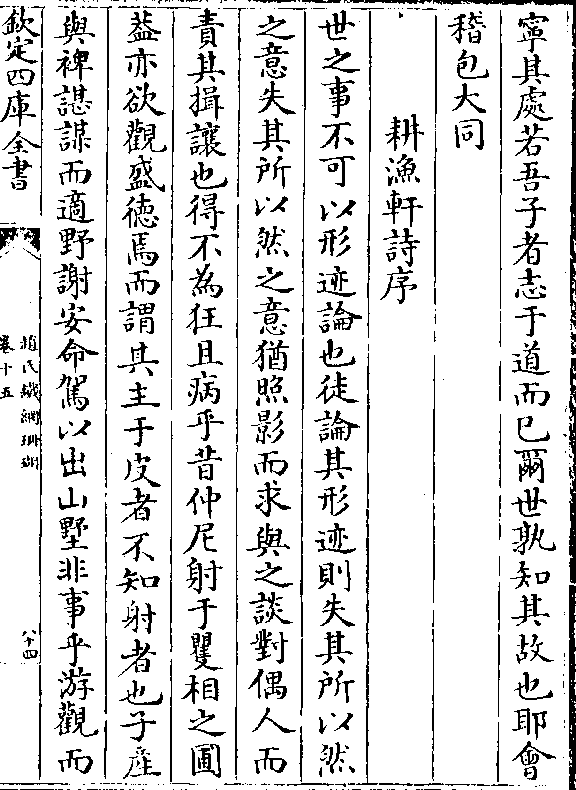 寧其處若吾子者志于道而已爾世孰知其故也耶會
稽包大同
耕漁軒詩序
世之事不可以形迹論也徒論其形迹則失其所以然
之意失其所以然之意猶照影而求與之談對偶人而
責其揖讓也得不為狂且病乎昔仲尼射于矍相之圃
葢亦欲觀盛徳焉而謂其主于皮者不知射者也子產
與裨諶謀而適野謝安命駕以出山墅非事乎游觀而
欽定四庫全書
趙氏鐵網珊瑚
卷十五
八十四